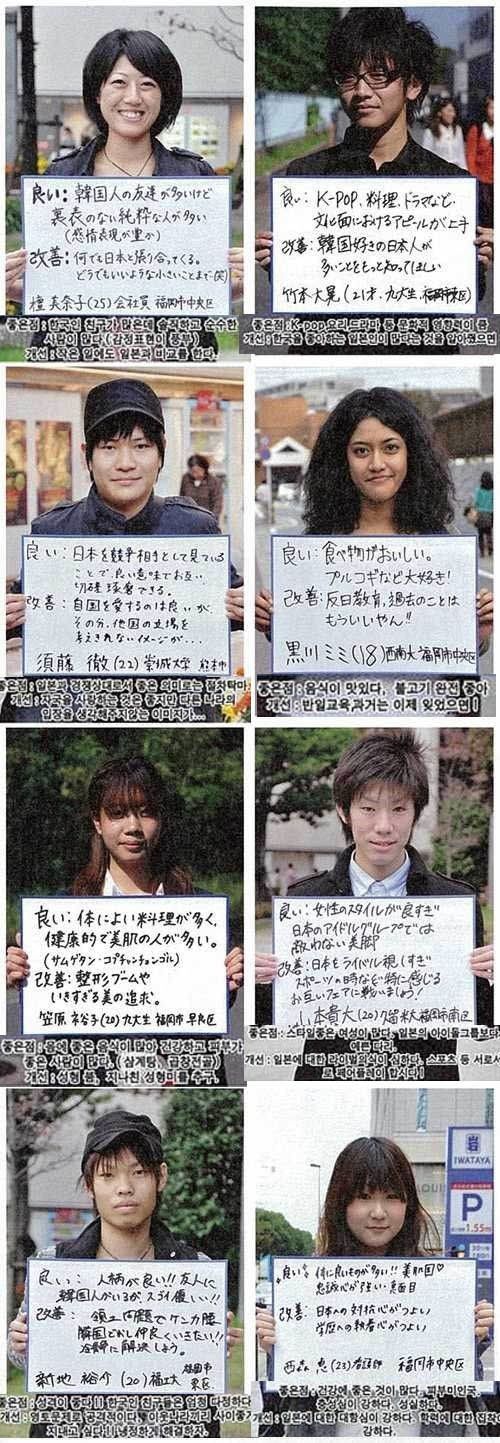 良い：韓国人の友達が多いけど
裏表のない純粋な人が多い
(感情表現が豊か)
改善：何でも日本と張り合ってくる。
どうでもいいような小さいことまで(笑)
檀 美奈子(25)会社員 福岡市中央区
좋은점 : 한국인 친구가 많은데 솔직하고 순수한
사람이 많다 (감정표현이 풍부)
개선 : 작은 일에도 일본과 비교를 한다.
良い：K-POP、料理、ドラマなど、
文化面におけるアピールが上手
改善：韓国好きの日本人が
多いことをもっと知ってほしい
竹本大晃(21才、九大生、福岡市東区)
좋은점 : K-pop 요리,드라마 등 문화적 영향력이 큼
개선 : 한국을 좋아하는 일본인이 많다는 것을 알아줬으면
良い：日本を競争相手として見ている
ことで、良い意味でお互い
切磋琢磨できる。
改善：自国を愛するのは良いが、
その分、他国の立場を
考えれないイメージが...
須藤 徹(22)崇城大学 熊本市
좋은점 : 일본과 경쟁상대로서 좋은 의미로는 절차탁마.
개선 : 자국을 사랑하는 것은 좋지만 다른 나라의
입장을 생각해주지않는 이미지가...
良い：食べ物がおいしい。
プルコギなど大好き!
改善：反日教育、過去のことは
もういいやん!!
黒川ミミ(18)西南大 福岡市中央区
좋은점 : 음식이 맛있다, 불고기 완전 좋아
개선 : 반일교육,과거는 이제 잊었으면!
良い：体によい料理が多く、
健康的で美肌の人が多い。
(サムゲタン・コプチャンチャンゴル)
改善：整形ブームや
いきすぎる美の追求。
笠原 裕子(20)九大生 福岡市 早良区
좋은점 : 몸에 좋은 음식이 많아 건강하고 피부가
좋은 사람이 많다. (삼계탕, 곱창전골)
개선 : 성형 붐, 지나친 성형미를 추구.
良い：女性のスタイルが良すぎ
日本のアイドルグループでは
敵わない美脚
改善：日本をライバル視しすぎ
スポーツの時などで特に感じる
お互いフェアに戦いましょう!
山本貴大(20)久留米大 福岡市南区
좋은점 : 스타일좋은 여성이 많다. 일본의 아이돌그룹보다
예쁜 다리.
개선 : 일본에 대한 라이벌의식이 심하다. 스포츠 등 서로서
로 페어플레이 합시다!
良い：人柄が良い!!友人に
韓国人がいるがスゴイ優しい!!
改善：領土問題でケンカ腰
隣国どおし仲良くいきたい!!
冷静に解決しよう。
新地 裕介(20)福工大 福岡市
東区
좋은점 : 성격이 좋다!! 한국인 친구들은 엄청 다정하다
개선 : 영토문제로 공격적이다. 이웃나라끼리 사이좋게
지내고 싶다!! 냉정하게 해결하자.
岩
IWATAYA
P
1.55m
良い：体に良いものが多い!!美肌国♡
忠誠心が強い・真面目
改善：日本への対抗心がつよい
学歴への執着心がつよい
西森 恵(23)看護師 福岡市中央区
좋은점 : 건강에 좋은 것이 많다. 피부미인국.
충성심이 강하다, 성실하다.
개선 : 일본에 대한 대항심이 강하다. 학력에 대한 집착이
강하다.